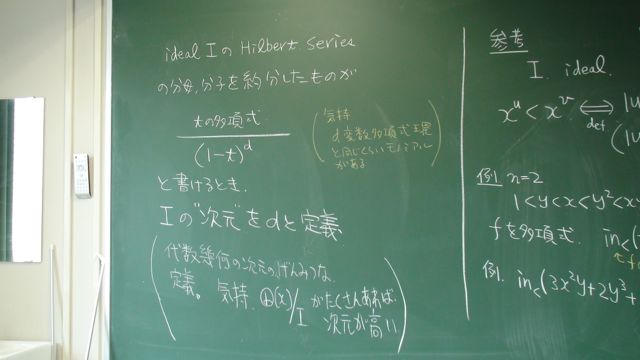 ideal I の Hilbert series
の分母,分子を約分したものが
tの多項式
(1-t)^d
と書けるとき.
Iの"次元"をdと定義.
(代数幾何の次元のげんみつな
定義。気持. (x)/I がたくさんあれば
次元が高い)
(気持
d変数多項式環
と同じくらいモノミアル
がある)
参考
I. ideal.
x^u < x^v ⟺ def
例1 n=2
1<y<x<y^2<xy
fを多項式. in<(
例. in<(3x^2y+2y^3+